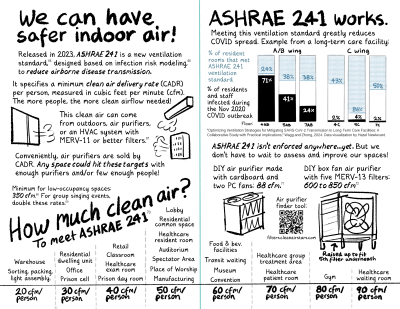 We can have
safer indoor air!
Released in 2023, ASHRAE 241 is a new ventilation
standard, designed based on infection risk modeling to
to reduce airborne disease transmission.
It specifies a minimum clean air delivery rate (CADR)
per person, measured in cubic feet per minute (cfm).
The more people, the more clean airflow needed!
This clean air can come
from outdoors, air purifiers,
or an HVAC system with
MERV-11 or better filters.
Conveniently, air purifiers are sold by
CADR. Any space could hit these targets with
enough purifiers and/or few enough people!
Minimum for low-occupancy spaces:
350 cfm. For group singing events,
double these rates:
How much clean air?
To meet ASHRAE 241
Warehouse
Sorting, packing,
light assembly
20 cfm/
person
Residential
dwelling unit
Office
Prison cell
30 cfm/
person
Retail
Classroom
Healthcare
exam room
Prison day room
40 cfm/
person
Lobby
Residential
common space
Healthcare
resident room
Auditorium
Spectator Area
Place of Worship
Manufacturing
50 cfm/
person
ASHRAE 241 works.
Meeting this ventilation standard greatly reduces
COVID spread. Example from a long-care facility:
% of residents
rooms that met
ASHRAE 241
ventilation
standard
% of residents
and staff
infected during
the Nov 2020
COVID outbreak
Floor:
A/B wing
C wing
24%
71%
38%
41%
38%
24%
43%
50%
2%
2%
ASHRAE 241 isn't enforced anywhere...yet. But we
don't have to wait to assess and improve our spaces!
DIY air purifier
made with
cardboard and
two PC fans: 88 cfm.
DIY box fan air
purifier with
five MERV-13 filters:
600 to 850 cfm
Air purifier
finder tool:
Raised up to fit
5th filter underneath
Food & bev.
facilities
Transit waiting
Museum
Convention
60 cfm/
person
Healthcare group
treatment area
Healthcare
patient room
70 cfm/
person
Gym
80 cfm/
person
Healthcare
waiting room
90 cfm/
person